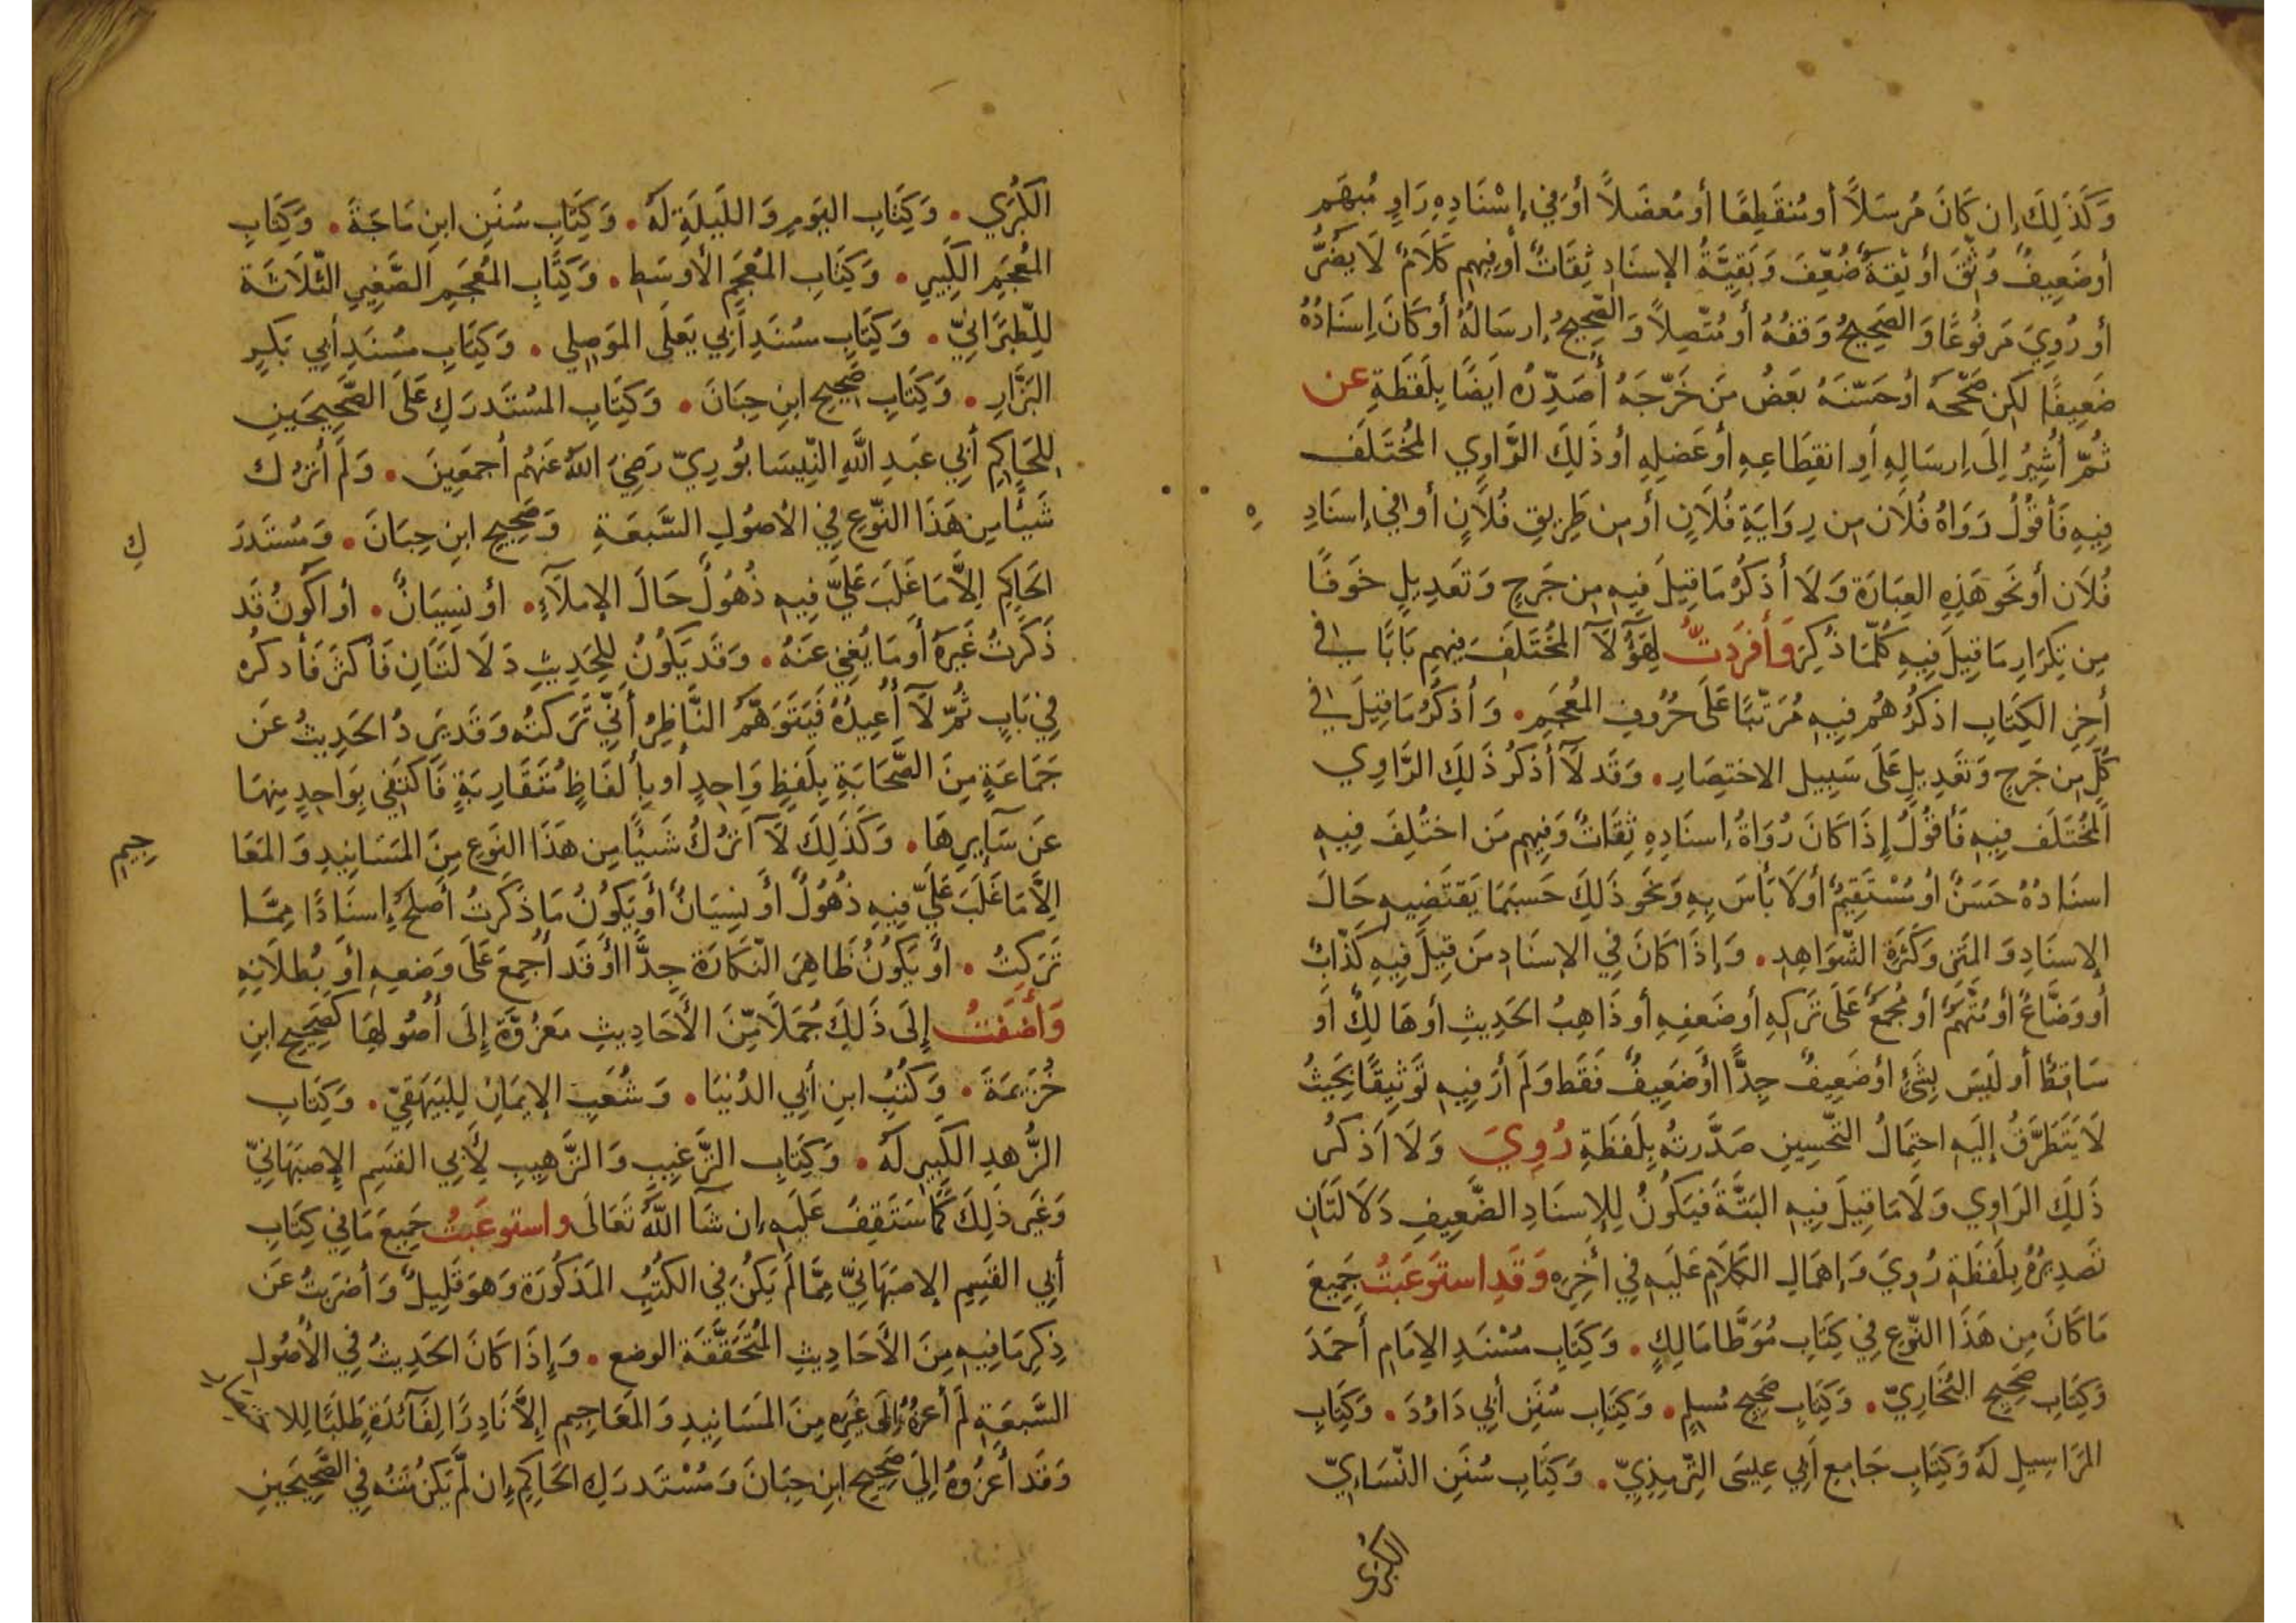 وَكَذَلِكَ إِن كَانَ مُرسَلاً أو مُنقَطِعًا أو مُعضَلاً أو فِي إسْنَادِهِ رَاوٍ مُبهَم
أو ضَعِيفٌ وُثِّقَ أو ثِقَةٌ ضُعِّفَ وَبَقِيَّةُ الإسنَادِ ثِقَاتٌ أو فِيهِم كَلَامٌ لَا يَضُرُّ
أو رُوِيَ مَرفُوعًا وَالصَّحِيحُ وَقفُهُ أو مُتَّصِلاً وَالصَّحِيحُ إرسَالُهُ أو كَانَ إسنَادُهُ
ضَعِيفًا لَكِن صَحَّحَهُ أو حَسَّنَهُ بَعضُ مَن خَرَّجَهُ أُصَدِّرُه اَيضًا بِلَفظَةِ عن
ثُمَّ أُشِيرُ إلَى إرسَالِهِ أوِ انقِطَاعِهِ أو عَضلِهِ أو ذَلِكَ الرَّاوِي المُختَلَفِ
فِيهِ فَأَقُولُ رَوَاهُ فُلَان مِن رِوَايَةِ فُلَانٍ أو مِن طَرِيقِ فُلَانٍ أو فِي إسنَادِهِ
فُلَان أو نَحوَ هَذِهِ العِبَارَة وَلَا أذكُرُ مَا قِيلَ فِيهِ مِن جَرحٍ وَتَعدِيلٍ خَوفًا
مِن تِكرَارِ مَا قِيلَ فِيهِ كُلَّمَا ذُكِرَ وَأفرَدتُ لِهَؤُلَآ المُختَلَفِ فِيهِم بَابًا فِي
أخِرِ الكِتَابِ اذكُرُهُم فِيهِ مُرَتَّبًا عَلَى حُرُوفِ المُعجَمِ . وَأذكُرُ مَا قِيلَ فِي
كُلٍّ مِن جَرحٍ وَتَعدِيلٍ عَلَى سَبِيلِ الاختِصَارِ . وَقَد لَآ أذكُرُ ذَلِكَ الرَّاوِي
المُختَلَف فِيهِ فَأقُولُ إذَا كَانَ رُوَاةُ إسنَادِهِ ثِقَاتٌ وَفِيهِم مَن اختُلِفَ فِيهِ
اسنَادُهُ حَسَنٌ أو مُسْتَقِيمٌ أو لَا بَأسَ بِهِ وَنَحو ذَلِكَ حَسبَمَا يَقتَضِيهِ حَالَ
الإسنَادِ وَالمَتنِ وَكَثرَةِ الشَّوَاهِدِ . وَإذَا كَانَ فِي الإسنَادِ مَن قِيلَ فِيهِ كَذَّابٌ
أو وَضَّاعٌ أو مُتَّهَمٌ أو مُجمَعٌ عَلَى تَركِهِ أو ضَعفِهِ أو ذَاهِبُ الحَدِيثِ أو هَالِكٌ أو
سَاقِطٌ أو لَيسَ بِشَئٍ أو ضَعِيفٌ جِدًّا أو ضَعِيفٌ فَقَط وَلَم أرَ فِيهِ تَوثِيقًا بِحَيثُ
لَا يَتَطَرَّقُ إلَيهِ احتِمَالُ التَّحسِينِ صَدَّرتُهُ بِلَفظَةِ رُوِيَ وَلَا اَذكُر
ذَلِكَ الرَاوِي وَلَا مَا قِيلَ فِيهِ البَتَّةَ فَيَكُونُ لِلإسنَادِ الضَّعِيفِ دَلَالَتَانِ
تَصدِيرُهُ بِلَفظَةِ رُوِيَ وَإهمَالِ الكَلَامِ عَلَيهِ فِي أخِرِه وَقَدِ استَوعَبتُ جَمِيعَ
مَا كَانَ مِن هَذَا النَّوعِ فِي كِتَابِ مُوَطَّا مَالِكٍ . وَكِتَابِ مُسْنَدِ الإمَامِ أحمَدَ
وَكِتَابِ صَحِيحِ البُخَارِيِّ . وَكِتَابِ صَحِيحِ مُسلِمٍ . وَكِتَابِ سُنَنِ أبِي دَاوُدَ . وَكِتَابِ
المَرَاسِيلِ لَهُ وَكِتَابِ جَامِعِ أبِي عِيسَى التِّرمِذِيِّ . وَكِتَابِ سُنَنِ النَّسَايِّ
الكبرى
الكُبرَي . وَكِتَابِ اليَومِ وَاللَيلَةِ لَهُ . وَكِتَابِ سُنَنِ ابنِ مَاجَةَ . وَكِتَابِ
المُعجَمِ الكَبِيرِ . وَكِتَابِ المُعجَمِ الأوسَطِ . وَكِتَابِ المُعجَمِ الصَّغِيرِ الثَّلَاثَة
لِلطَّبَرَانِيِّ . وَكِتَابِ مسُنَدِ أبِي يَعلَى المَوصِلِي . وَكِتَابِ مسُنَدِ أبِي بَكرٍ
البَزَّارِ . وَكِتَابِ صَحِيحِ ابنِ حِبَانَ . وَكِتَابِ المُستَدرَكِ عَلَى الصَّحِيحَينِ
لِلحَاكِمِ أبِي عَبدِ اللَّهِ النَّيسَابُورِيِّ رَضِيَ اللهُ عَنهُم أجمَعِينَ . وَلَم أترُك
شَيئًا مِن هَذَا النَّوعِ فِي الأصُولِ السَّبعَةِ وَصَحِيحِ ابنِ حِبَانَ . وَمُستَدرَ
كِ
الحَاكِمِ الاَّ مَا غَلَبَ عَلَيَّ فِيهِ ذُهُولٌ حَالَ الإملَآءِ . أو نِسيَانٌ . أو أكُونُ قَد
ذَكَرتُ غَيرَهُ أو مَا يُغنِي عَنهُ . وَقَد يَكُونُ لِلحَدِيثِ دَلَالَتَانِ فَأكثَرَ فَأذكره
فِي بَابٍ ثُمَّ لَآ أُعِيدُهُ فَيَتَوَهَّمُ النَّاظِرُ أنِّي تَرَكتُه وَقَد يَرِدُ الحَدِيثُ عَن
جَمَاعَةٍ مِنَ الصَّحَابَةِ بِلَفظٍ وَاحِدٍ أو بِألفَاظٍ مُتَقَارِبَةٍ فَأكتَفِي بِوَاحِدٍ مِنهَا
عَن سَآيِرِهَا . وَكَذَلِكَ لَآ اترُكُ شَيئًا مِن هَذَا النَوعِ مِنَ المَسَانِيدِ وَالمَعَا
جِيمِ
الاَّ مَا غَلَبَ عَلَيَّ فِيهِ ذُهُولٌ أو نِسيَانٌ أو يَكُونُ مَا ذَكَرتُ أصلَحَ إسنَادًا مِمَّا
تَرَكتُ . أو يَكُونُ ظَاهِرَ النَّكَارَة جِدًّا أو قَد أُجمِعَ عَلَى وَضعِهِ أو بُطلَانِهِ
وَأضَفتُ إلَى ذَلِكَ جُمَلًا مِّنَ الأحَادِيثِ مَعزُوَّةً إلَى أصُولِهَا كَصَحِيحِ ابنِ
خُزَيمَةَ . وَكُتُبِ ابنِ أبِي الدُنيَا . وَشُعَبِ الإيمَانِ لِلبَيهَقِيِّ . وَكِتَابِ
الزُّهدِ الكَبِيرِ لَهُ . وَكِتَابِ التَّرغِيبِ وَالتَّرهِيبِ لِأبِي القَسِمِ الإصبَهَانِيِّ
وَغَيرِ ذَلِكَ كَمَا سَتَقِفُ عَلَيهِ إن شَآ اللَّهُ تَعَالَى واستوعَبتُ جَمِيعَ مَا فِي كِتَابِ
أبِي القَسِمِ الإصبَهَانِيِّ مِمَّا لَم يَكُن فِي الكُتُبِ المَذكُورَة وَهوَ قَلِيلٌ وَأضرَبتُ عَن
ذِكرِ مَا فِيهِ مِنَ الأحَادِيثِ المُتَحَقَّقَةِ الوضع . وَإذَا كَانَ الحَدِيثُ فِي الأصُولِ
السَّبعَةِ لَم أعزُهُ إلَى غَيرِه مِنَ المَسَانِيدِ وَالمَعَاجِيمِ إلاَّ نَادِرًا لِفَآئدَةٍ طَلَبًا لِلاختصار
وَقَد أعزُوهُ إلَى صَحِيحِ ابنِ حِبَانَ وَمُسْتَدرَكِ الحَاكِمِ إن لَّم يَكُن مَتنُه فِي الصَّحِيحَينِ